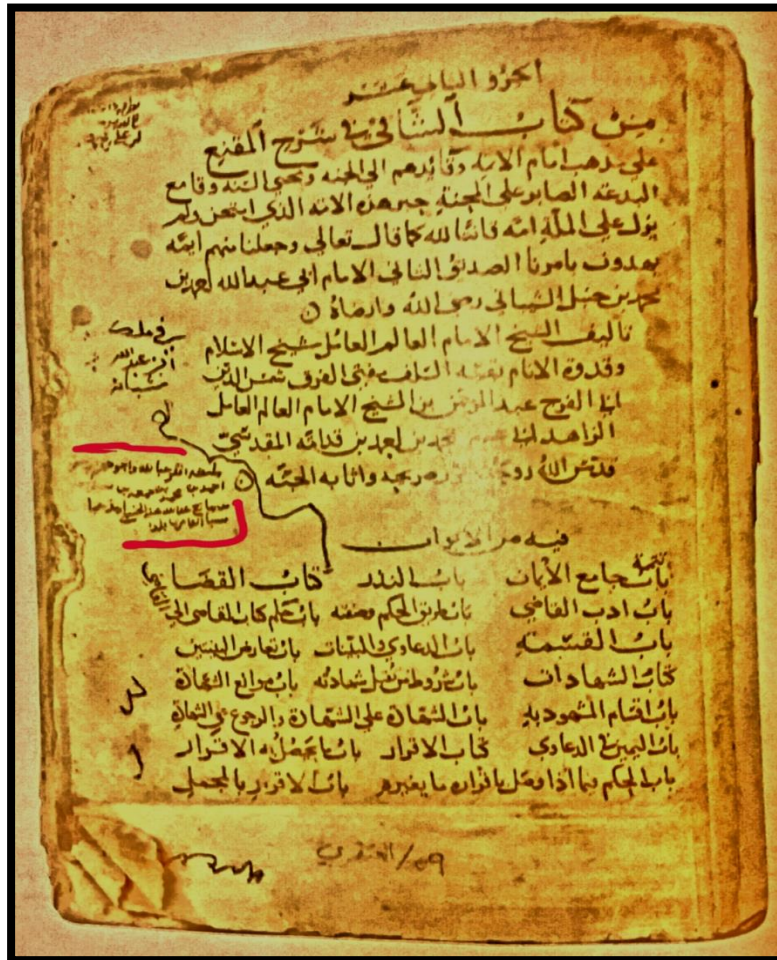 الجزو الثاني عشر
من كتاب الشافي في شرح المقنع
على مذهب امام الايمه وقائدهم الى الجنه ومحي السنه وقامع
البدعه الصابر على المحنة حبر هذه الامه الذي امتحن ولم
يزل على الملة امه قانتا لله كما قال تعالى وجعلنا منهم ايمه
يهدون بامرنا الصديق الثاني الامام ابي عبد الله احمد بن
محمد بن حنبل الشيباني رضى الله وارضاه
تاليف الشيخ الامام العالم العامل شيخ الاسلام
وقدوة الانام بقية السلف مفتى الفرق شمس الدين
ابي الفرج عبد الرحمن بن الشيخ الامام العالم العامل
الزاهد ابي عمر محمد بن احمد بن قدامه المقدسي
قدس الله روحه ونور ضريحه واثابه الجنه
فيه من الابواب
تتمة
باب جامع الأيمان باب النذر كتاب القضا
باب ادب القاضي باب طريق الحكم وصفته باب حكم كتاب القاضى الى القاضي
باب القسمه باب الدعاوي والبينات باب تعارض البينتين
كتاب الشهادات باب شروط من تقبل شهادته باب موانع الشهادة
باب اقسام المشهود به باب الشهادة على الشهادة والرجوع عن الشهادة
باب اليمين في الدعاوي كتاب الاقرار باب ما يحصل به الاقرار
باب الحكم فيما اذا وصل باقراره ما يغيره باب الاقرار بالمجمل